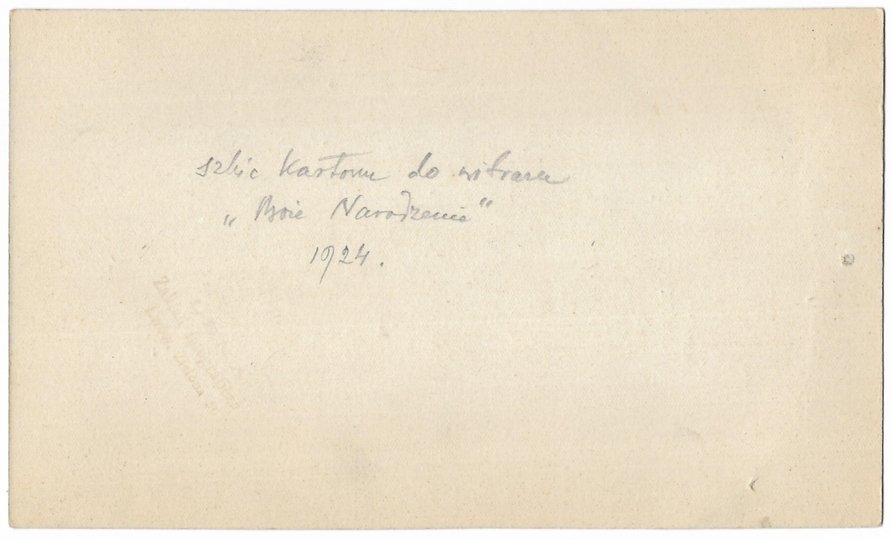 szkic kartonu do witrażu
„Boże Narodzenie"
1924.